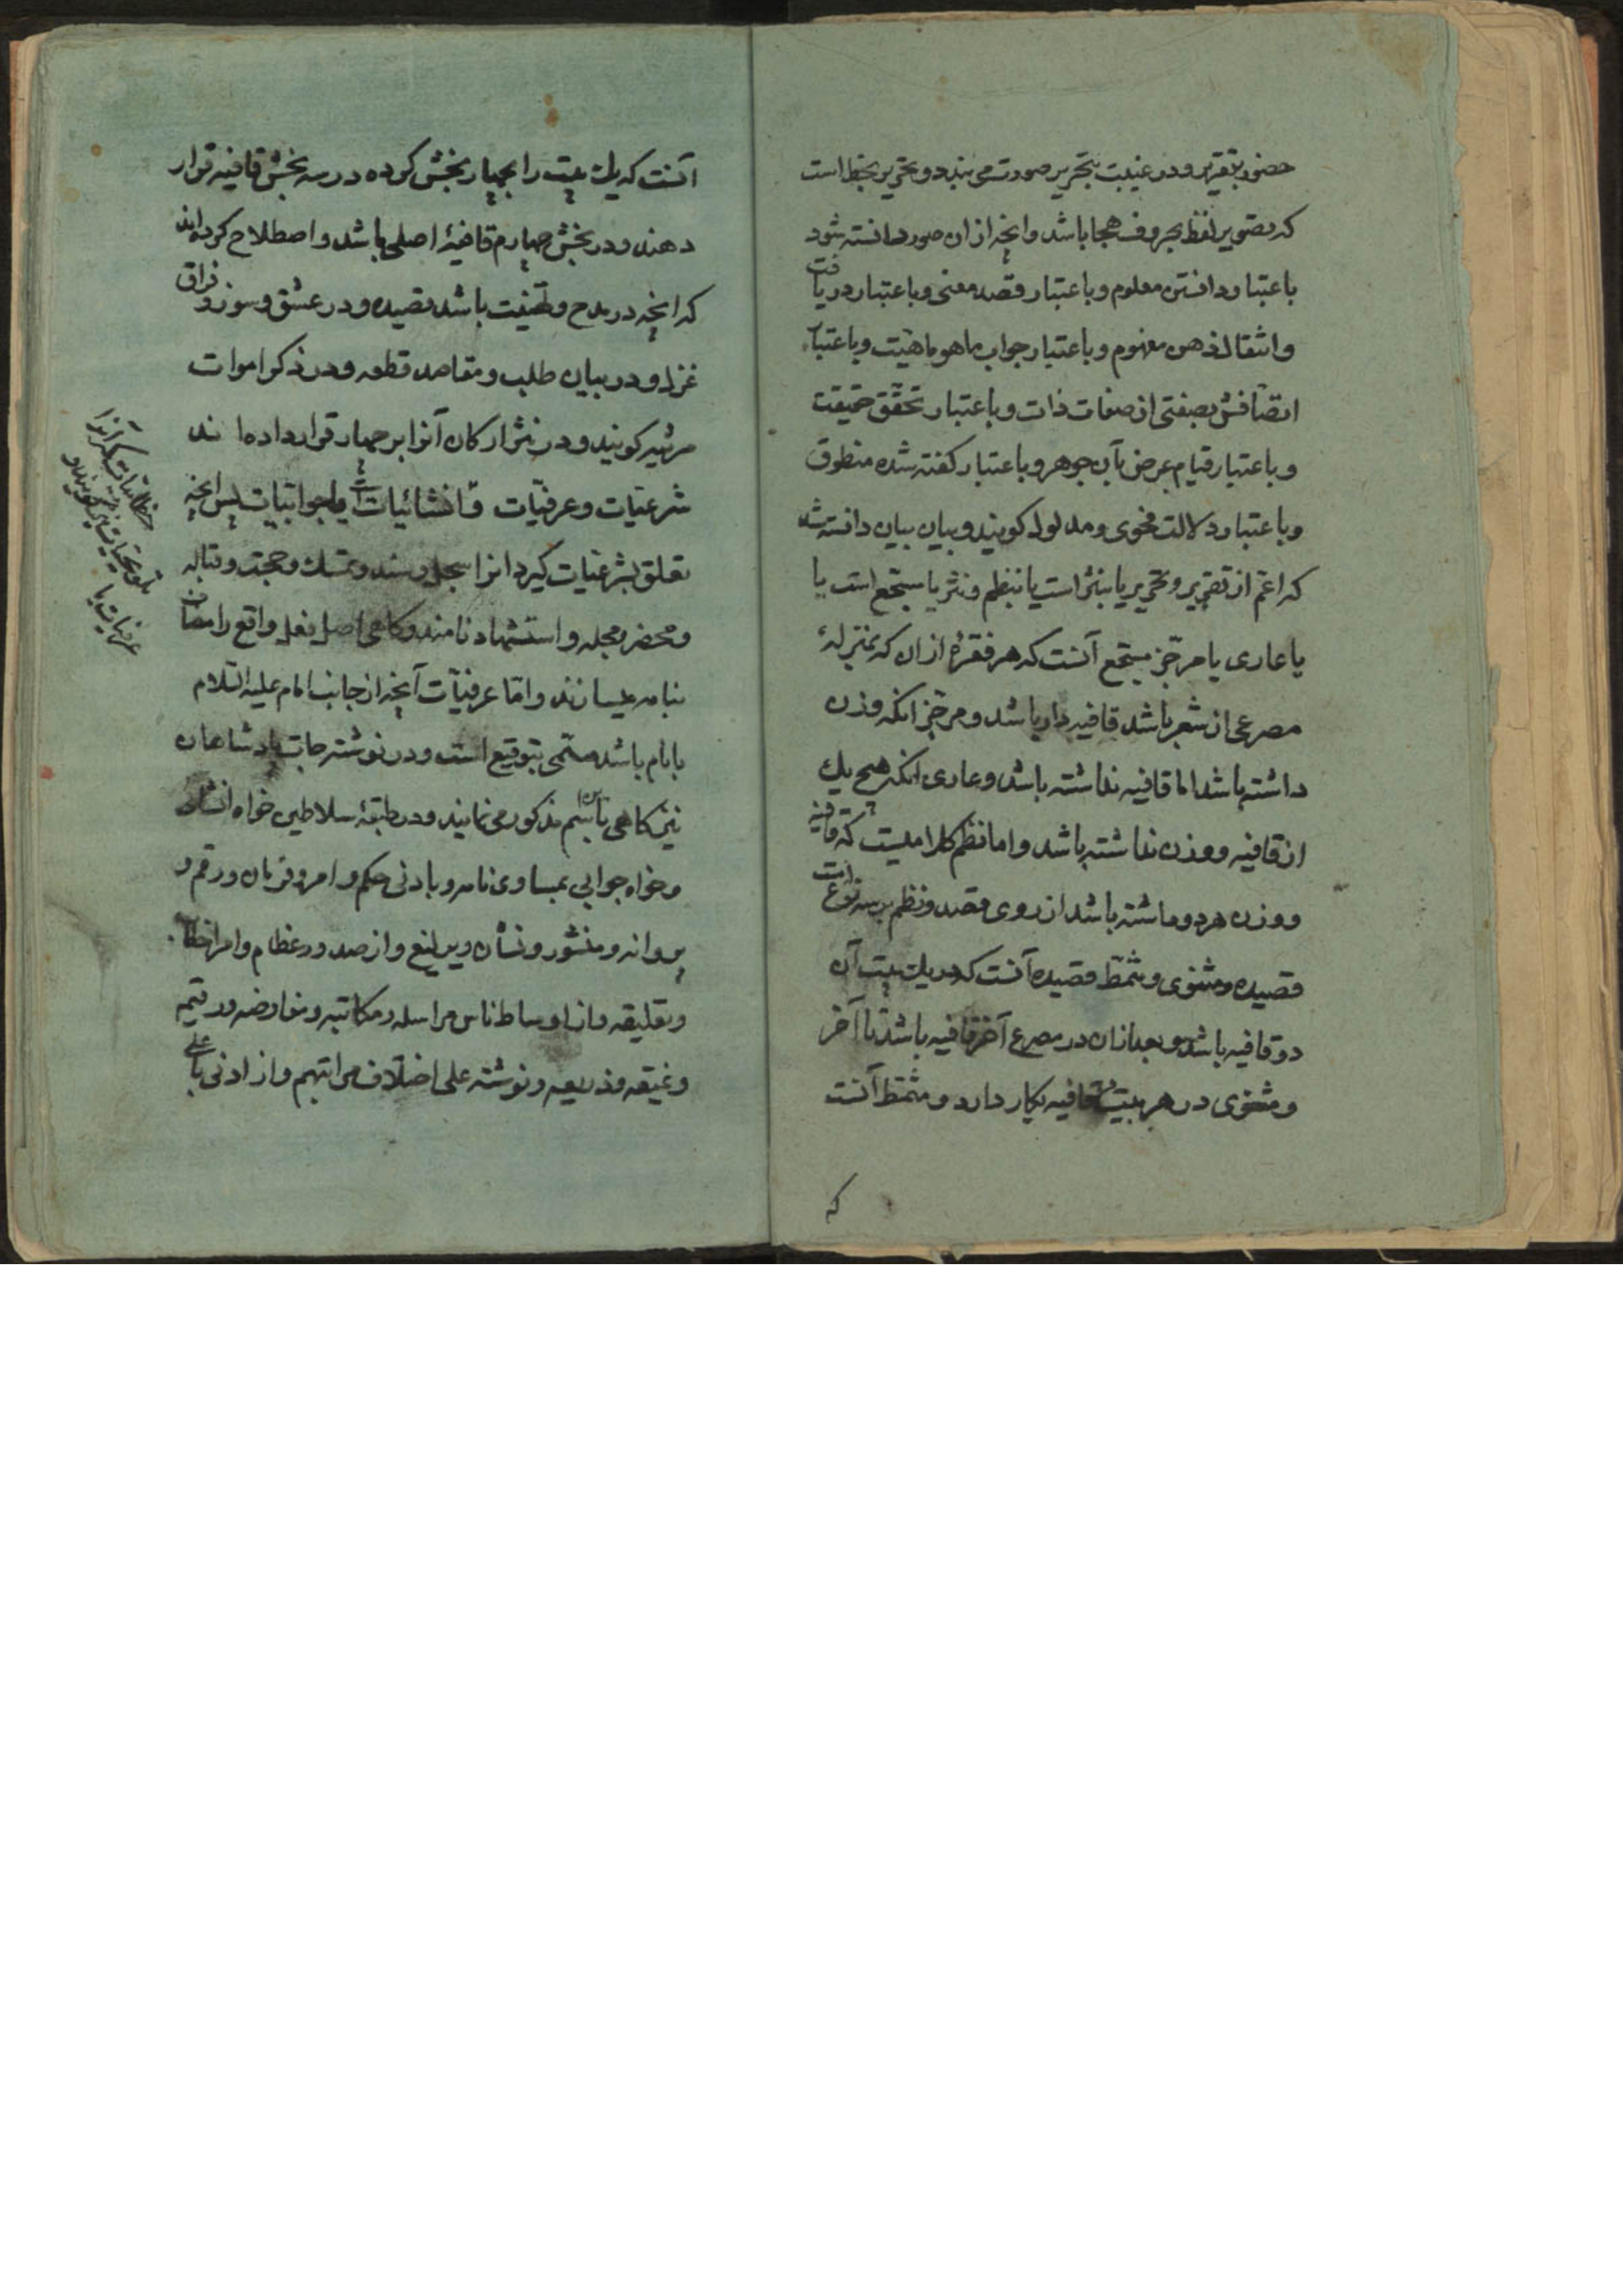 حضور بتقریر و در غیبت بتحریر صورت می بندد و تحریر بخط است
که تصویر لفظ بحروف هجا باشد و انچه از ان صور دانسته شود
باعتبار دانستن معلوم و باعتبار قصد معنی و باعتبار دریافت
و انتقال ذهن مفهوم و باعتبار جواب ما هو ماهیت و باعتبار
اتصافش بصفتی از صفات ذات و باعتبار تحقق حقیقت
و باعتبار قیام عرض بآن جوهر و باعتبار کفته شده منطوق
و باعتبار دلالت فحوی و مدلول کویند و بیان بیان دانسته شد
که اعم از تقریر و تحریر یا بنثر است یا بنظم و نثر یا مسجع است یا
یا عاری یا مرجز مسجع آنست که هر فقرهٔ از ان که بمنزلهٔ
مصرعی از شعر باشد قافیه دار باشد و مرجز انکه وزن
داشته باشد اما قافیه نداشته باشد و عاری انکه هیچ یك
از قافیه و وزن نداشته باشد و اما نظم کلامیست که قافیه
و وزن هر دو داشته باشد از روی قصد و نظم بر سه نوع است
قصیده و مثنوی و مسمّط قصیده آنست که در یك بیت آن
دو قافیه باشد و بعد ازان در مصرع آخر قافیه باشد تا آخر
و مثنوی در هر بیت دو قافیه بکار دارد و مسمّط آنست
که
آنست که یك بیت را بچهار بخش کرده در سه بخش قافیه قرار
دهند و در بخش چهارم قافیهٔ اصلی باشد و اصطلاح کرده اند
که انچه در مدح و تهنیت باشد قصیده و در عشق و سوز و فراق
غزل و در بیان طلب و مقاصد قطعه و در ذکر اموات
مرثیه کویند و در نثر ارکان آنرا بر چهار قرار داده اند
شرعیّات و عرفیّات و انشائیات یا جوابیات پس انچه
تعلق بشرعیات کیرد انرا سجل و سند و تمسك و حجت و قباله
و محضر و مجله و استشهاد نامند و کاهی اصل فعل واقع را مضاف
بنامه میسازند و امّا عرفیّات آنچه از جانب امام علیه السّلام
بانام باشد مسمّی بتوقیع است و در نوشته جات پادشاهان
نیز کاهی باین اسم مذکور می نمایند و در طبقهٔ سلاطین خواه انشائی
و خواه جوابی بمساوی نامه و بادنی حکم و امر و فرمان و رقم و
پروانه و منشور و نشان و یرلیغ و از صدور عظام و امرا خطاب
و تعلیقه و از اوساط ناس مراسله و مکاتبه و مفاوضه و رقیمه
و نمیقه و ذریعه و نوشته علی اختلاف مراتبهم و از ادنی باعلی